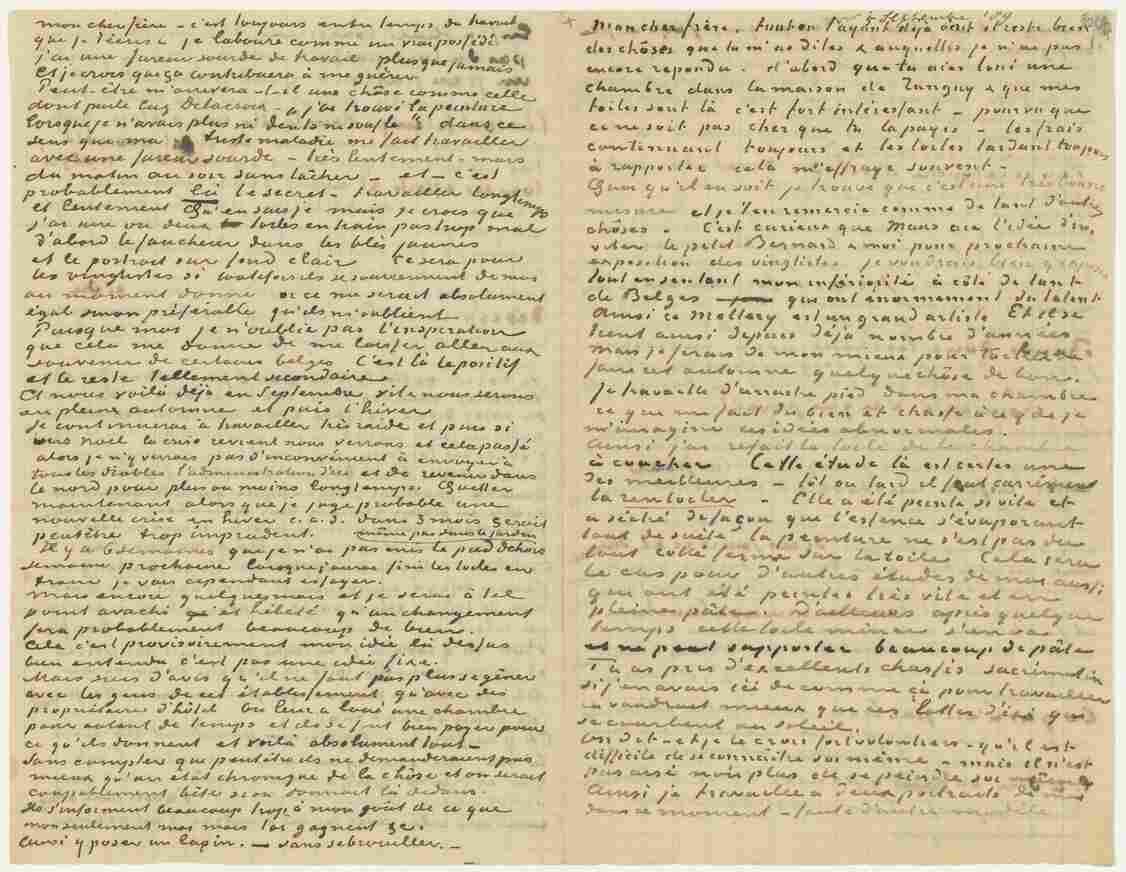 mon cher frère – c'est toujours entre temps du travail
que je t'écris – je laboure comme un vrai possédé
j'ai une fureur sourde de travail plus que jamais
Et je crois que ça contribuera à me guérir
Peut-être m'arrivera-t-il une chôse comme celle
dont parle Eug Delacroix – "j'ai trouvé la peinture
lorsque je n'avais plus ni dents ni souffle" dans ce
sens que ma triste maladie me fait travailler
avec une fureur sourde – très lentement – mais
du matin au soir sans lâcher – et – c'est
probablement là le secret – travailler longtemps
et lentement. Qu'en sais je mais je crois que
j'ai une ou deux toiles en train pas trop mal
d'abord le faucheur dans les blés jaunes
et le portrait sur fond clair ce sera pour
les vingtistes si toutefois ils se souviennent de moi
au moment donné or ce me serait absolument
égal sinon préférable qu'ils m'oublient
Puisque moi je n'oublie pas l'inspiration
que cela me donne de me laisser aller aux
souvenir de certains belges C'est là le positif
et le reste tellement secondaire
Et nous voilà déjà en Septembre, vite nous serons
en pleine automne et puis l'hiver
Je continuerai à travailler très raide et puis si
vers noël la crise revient nous verrons et cela passé
alors je n'y verrais pas d'inconvenient à envoyer à
tous les diables l'administration d'ici et de revenir dans
le nord pour plus ou moins longtemps. Quitter
maintenant alors que je juge probable une
nouvelle crise en hiver c.à.d. dans 3 mois serait
peutêtre trop imprudent. même pas dans le jardin
Il y a 6 semaines que je n'ai pas mis le pied dehors
semaine prochaine lorsque j'aurai fini les toiles en
train je vais cependant essayer.
Mais encore quelques mois et je serai à tel
point avachi et hébété qu'un changement
fera probablement beaucoup de bien.
Cela c'est provisoirement mon idée là dessus
bien entendu c'est pas une idée fixe.
Mais suis d'avis qu'il ne faut pas plus se gêner
avec les gens de cet établissement qu'avec des
propriétaire d'hôtel On leur a loué une chambre
pour autant de temps et ils se font bien payer pour
ce qu'ils donnent et voilà absolument tout –
Sans compter que peutêtre ils ne demanderaient pas
mieux qu'un état chronique de la chôse et on serait
coupablement bête si on donnait là dedans.
Ils s'informent beaucoup trop à mon goût de ce que
non seulement moi mais toi gagnent &c.
Aussi y poser un lapin. – sans se brouiller. –
5 Septembre '89
Mon cher frère, tout en t'ayant déjà écrit il reste bien
des chôses que tu m'as dites & auxquelles je n'ai pas
encore répondu. d'abord que tu aies loué une
chambre dans la maison de Tanguy & que mes
toiles sont là c'est fort intéressant – pourvu que
ce ne soit pas cher que tu la payes – les frais
continuant toujours et les toiles tardant toujours
à rapporter cela m'effraye souvent –
Quoi qu'il en soit je trouve que c'est une très bonne
mesure et je t'en remercie comme de tant d'autres
chôses. C'est curieux que Maus aie l'idée d'in-
viter le petit Bernard & moi pour prochaine
exposition des vingtistes. je voudrais bien y exposer
tout en sentant mon infériorité à côté de tant
de Belges qui ont énormement du talent
Ainsi ce Mellery est un grand artiste Et il se
tient aussi depuis déjà nombre d'années
Mais je ferais de mon mieux pour tacher de
faire cet automne quelque chôse de bon.
Je travaille d'arrache pied dans ma chambre
ce qui me fait du bien et chasse à ce que je
m'imagine ces idées abnormales.
Ainsi j'ai refait la toile de la chambre
à coucher Cette étude là est certes une
des meilleures – tôt ou tard il faut carrément
la rentoiler – Elle a été peinte si vite et
a séché de façon que l'essence s'évaporant
tout de suite la peinture ne s'est pas du
tout collé ferme sur la toile. Cela sera
le cas pour d'autres études de moi aussi
qui ont été peintes très vite et en
pleine pâte. D'ailleurs après quelque
temps cette toile mince s'en va
et ne peut supporter beaucoup de pâte
Tu as pris d'excellents chassis sacré matin
si j'en avais ici de comme ça pour travailler
ça vaudrait mieux que ces lattes d'ici qui
se courbent au soleil.
On dit – et je le crois fort volontiers – qu'il est
difficile de se connaître soi même – mais il n'est
pas aisé non plus de se peindre soi même
Ainsi je travaille à deux portraits de moi
dans ce moment – faute d'autre modèle